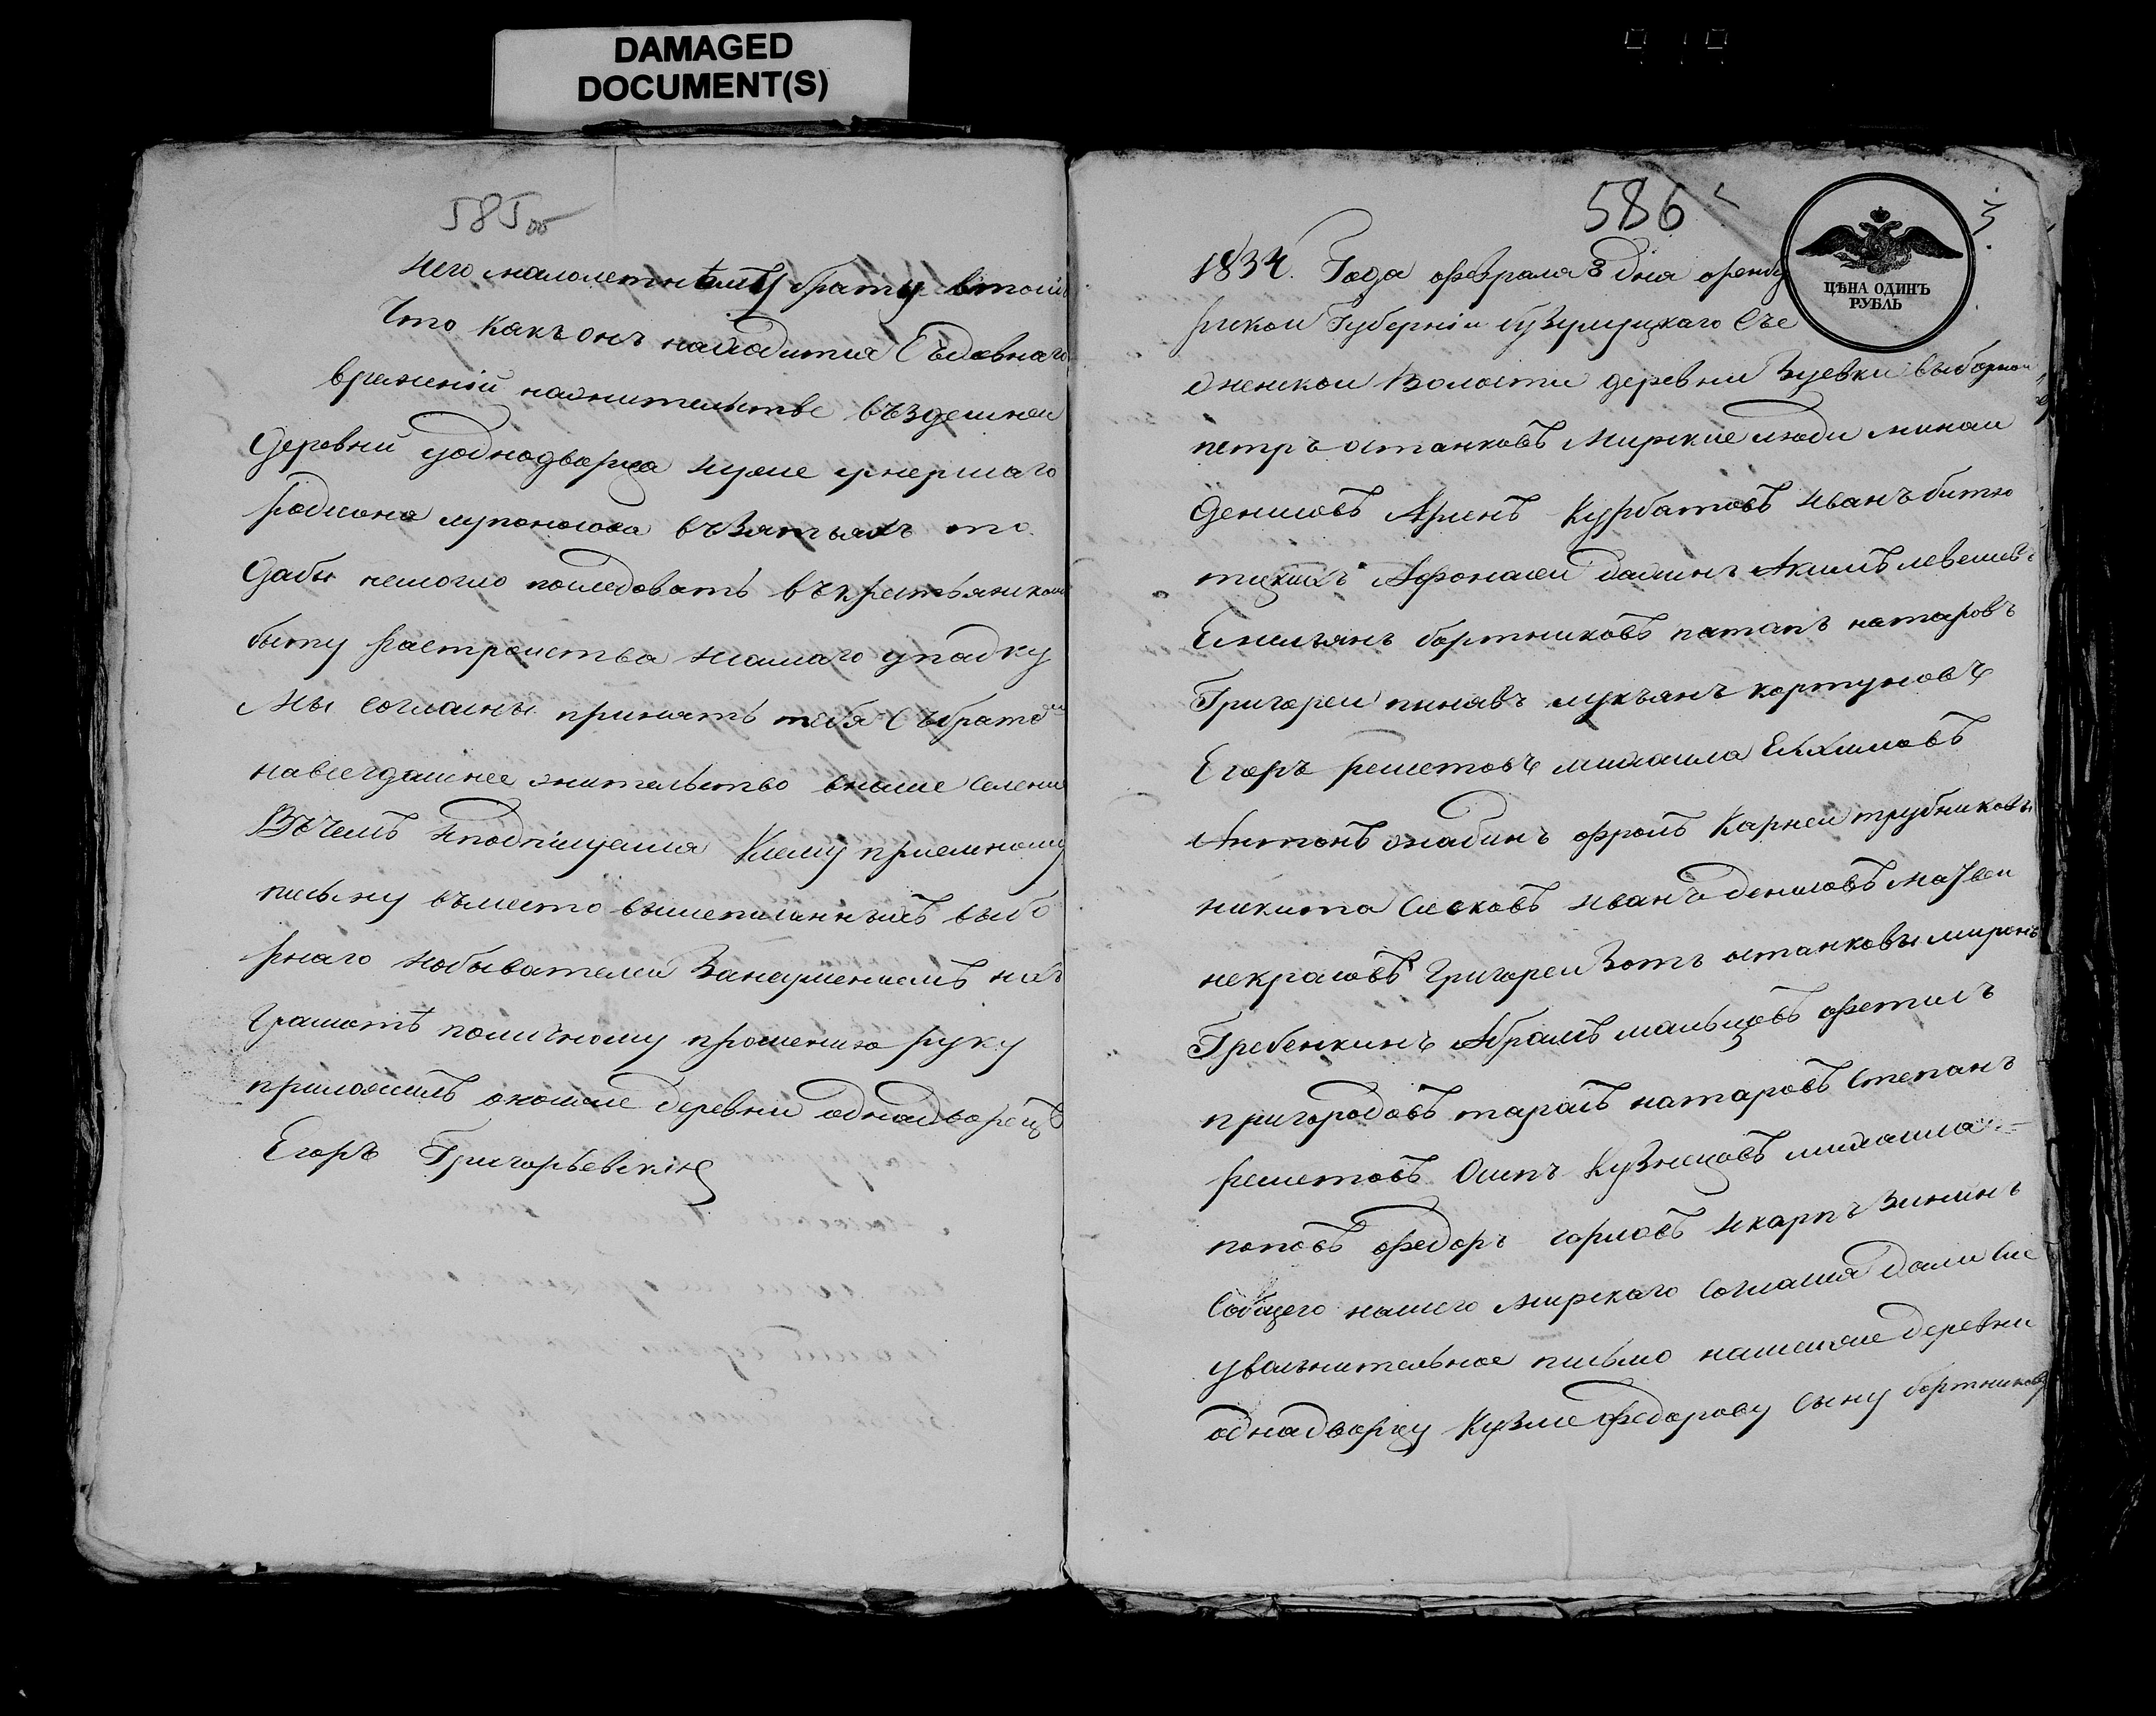 DAMAGED
DOCUMENT(S)
585об
него малолетнему брату втомъ
Что какъ онъ находится Съдавнаго
времений нажительстве въздешнеи
деревни уоднодворца ныне умершаго
родиона въЗятьяхъ то
дабы немогло последовать въкрестьянскомъ
быту растроиства исамаго упадку
Мы согласны принять тебя Събратомъ
навсегдашнее жительство внаше селение
Въчемъ иподпишемся Ксему приемному
письму въместо вышеписанныхъ выбо
рнаго иобывателеи Занеумениемъ ихъ
Грамотѣ поличному прошению руку
приложилъ тоежъ деревни однадворецъ
Егоръ
586
ЦѢНА ОДИНЪ
РУБЛЬ
1834. Года февраля 8 дня оренбу
ргскои Губернiи бузулуцкаго Съе
зженскои Волости деревни Зуевки выборнои
петръ останковъ Мирские люди минаи
Денисовъ Курбатовъ иванъ битю
тцкихъ Афонасеи Акимъ
Емельянъ бортниковъ патапъ натаровъ
Григореи лукъянъ кортуновъ
Егоръ решетовъ михаила Евхимовъ
Антонъ жабинъ фролъ Карнеи трубниковы
никита иванъ денисовъ матвеи
некрасовъ Григореи Зотъ останковы миронъ
Гребенкинъ Абрамъ мальцовъ фетисъ
пригородовъ тарасъ натаровъ Степанъ
решетовъ Осипъ Кузнецовъ михаила
поповъ федоръ икарпъ Зининъ
Собщего нашего мирскаго Согласия дали Сие
увольнительное письмо нашеиже деревни
однадворцу Кузме федорову Сыну бортникову